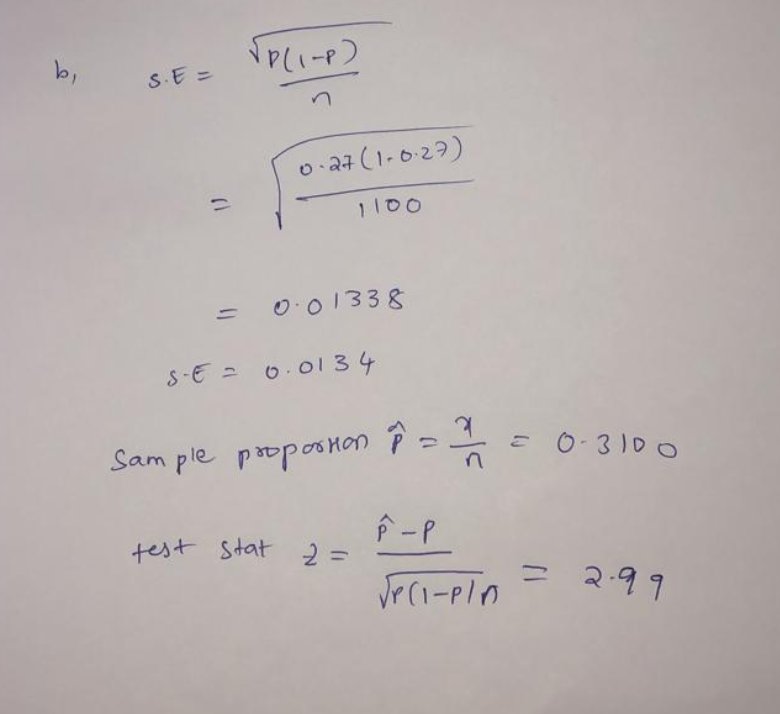 b, S.E = √P(1-P) / n
= √0.27(1-0.27) / 1100
= 0.01338
S.E = 0.0134
Sample proportion p̂ = x/n = 0.3100
test stat z = p̂-P / √P(1-P/n = 2.99